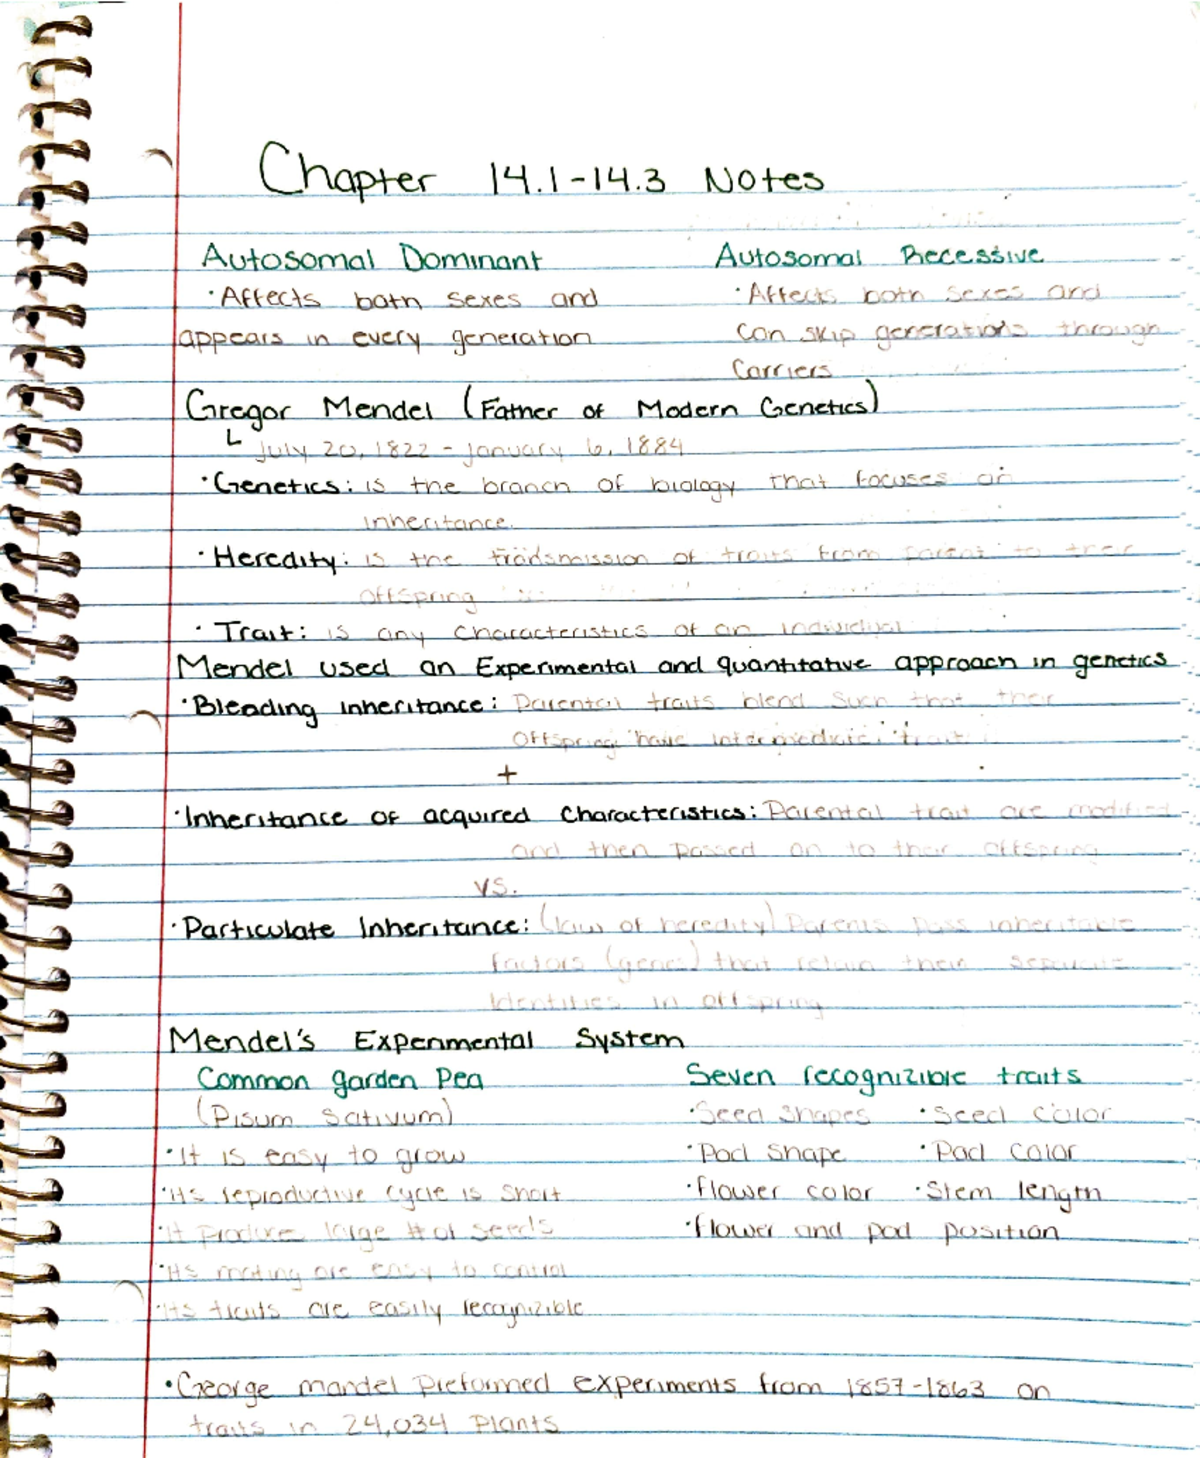 Chapter 14.1-14.3 Notes
Autosomal Dominant
·Affects both sexes and
appears in every generation
Autosomal Recessive
·Affects both sexes and
can skip generations through
Carriers
Gregor Mendel (Father of Modern Genetics)
July 20, 1822 - January 6, 1884
·Genetics: is the branch of biology that focuses on
inheritance.
·Heredity: is the transmission of traits from parent to their
offspring
·Trait: is any characteristics of an individual
Mendel used an Experimental and quantitative approach in genetics
·Bleading inheritance: Parental traits blend such that their
offspring have intermediate trait
+
·Inheritance of acquired characteristics: Parental trait are modified
and then passed on to their offspring
vs.
·Particulate Inheritance: (law of heredity) Parents pass inheritable
factors (genes) that retain their separate
Identities in offspring
Mendel's Experimental System
Common garden Pea
(Pisum Sativum)
·It is easy to grow
·It's reproductive cycle is short
·It produce large # of seeds
·It's mating are easy to control
·Its traits are easily recognizible
Seven recognizible traits
·Seed shapes ·Seed color
·Pod shape ·Pod color
·flower color ·Stem length
·flower and pod position
·George mandel preformed experiments from 1857-1863 on
traits in 24,034 plants